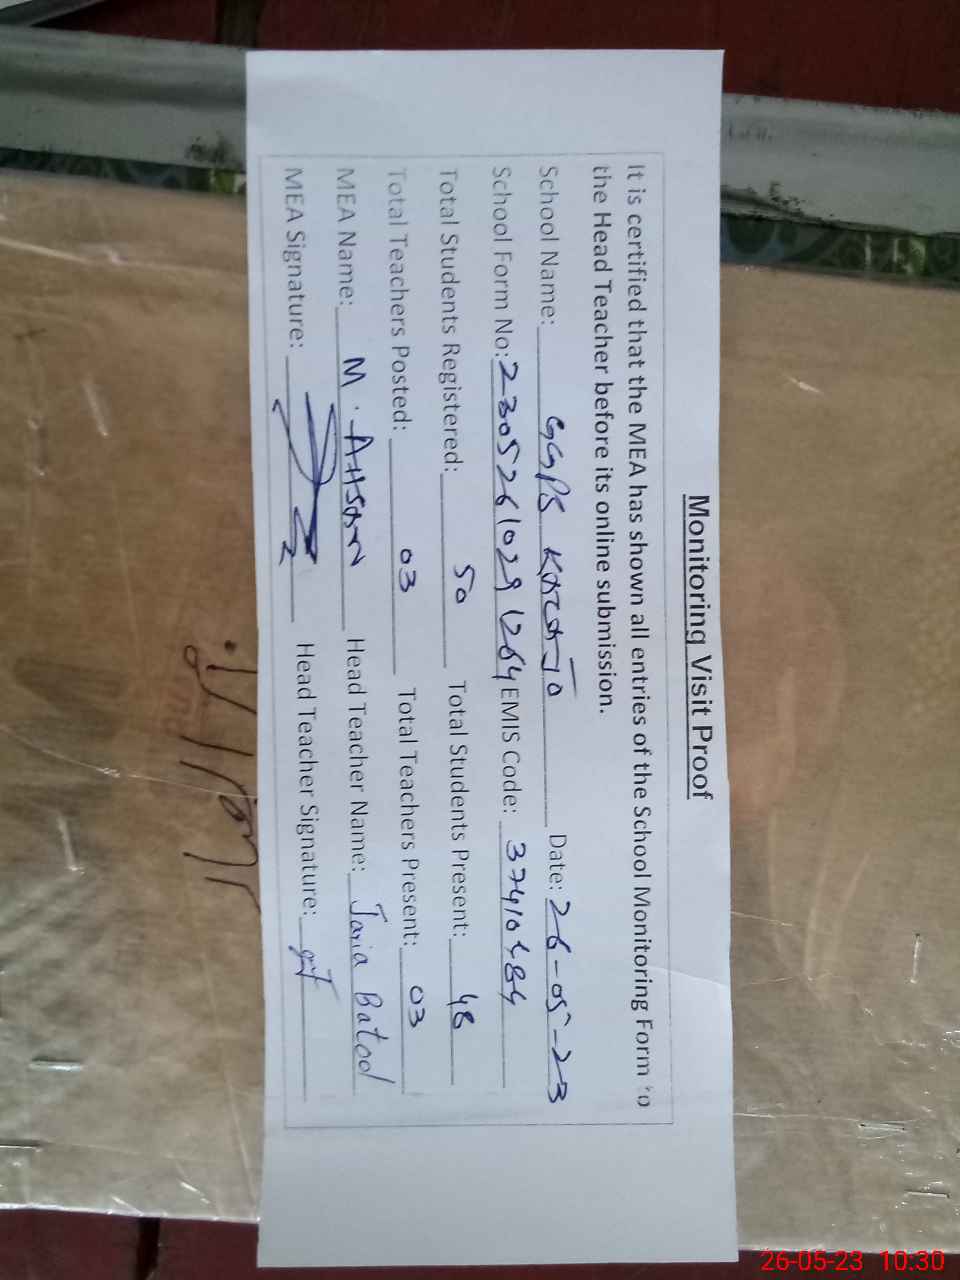 Monitoring Visit Proof
It is certified that the MEA has shown all entries of the School Monitoring Form to
the Head Teacher before its online submission.
School Name: GGPS Date: 26-05-23
School Form No: EMIS Code:
Total Students Registered: 50 Total Students Present: 48
Total Teachers Posted: 03 Total Teachers Present: 03
MEA Name: M. AHSAN Head Teacher Name: Batool
MEA Signature: Head Teacher Signature:
26-05-23 10:30